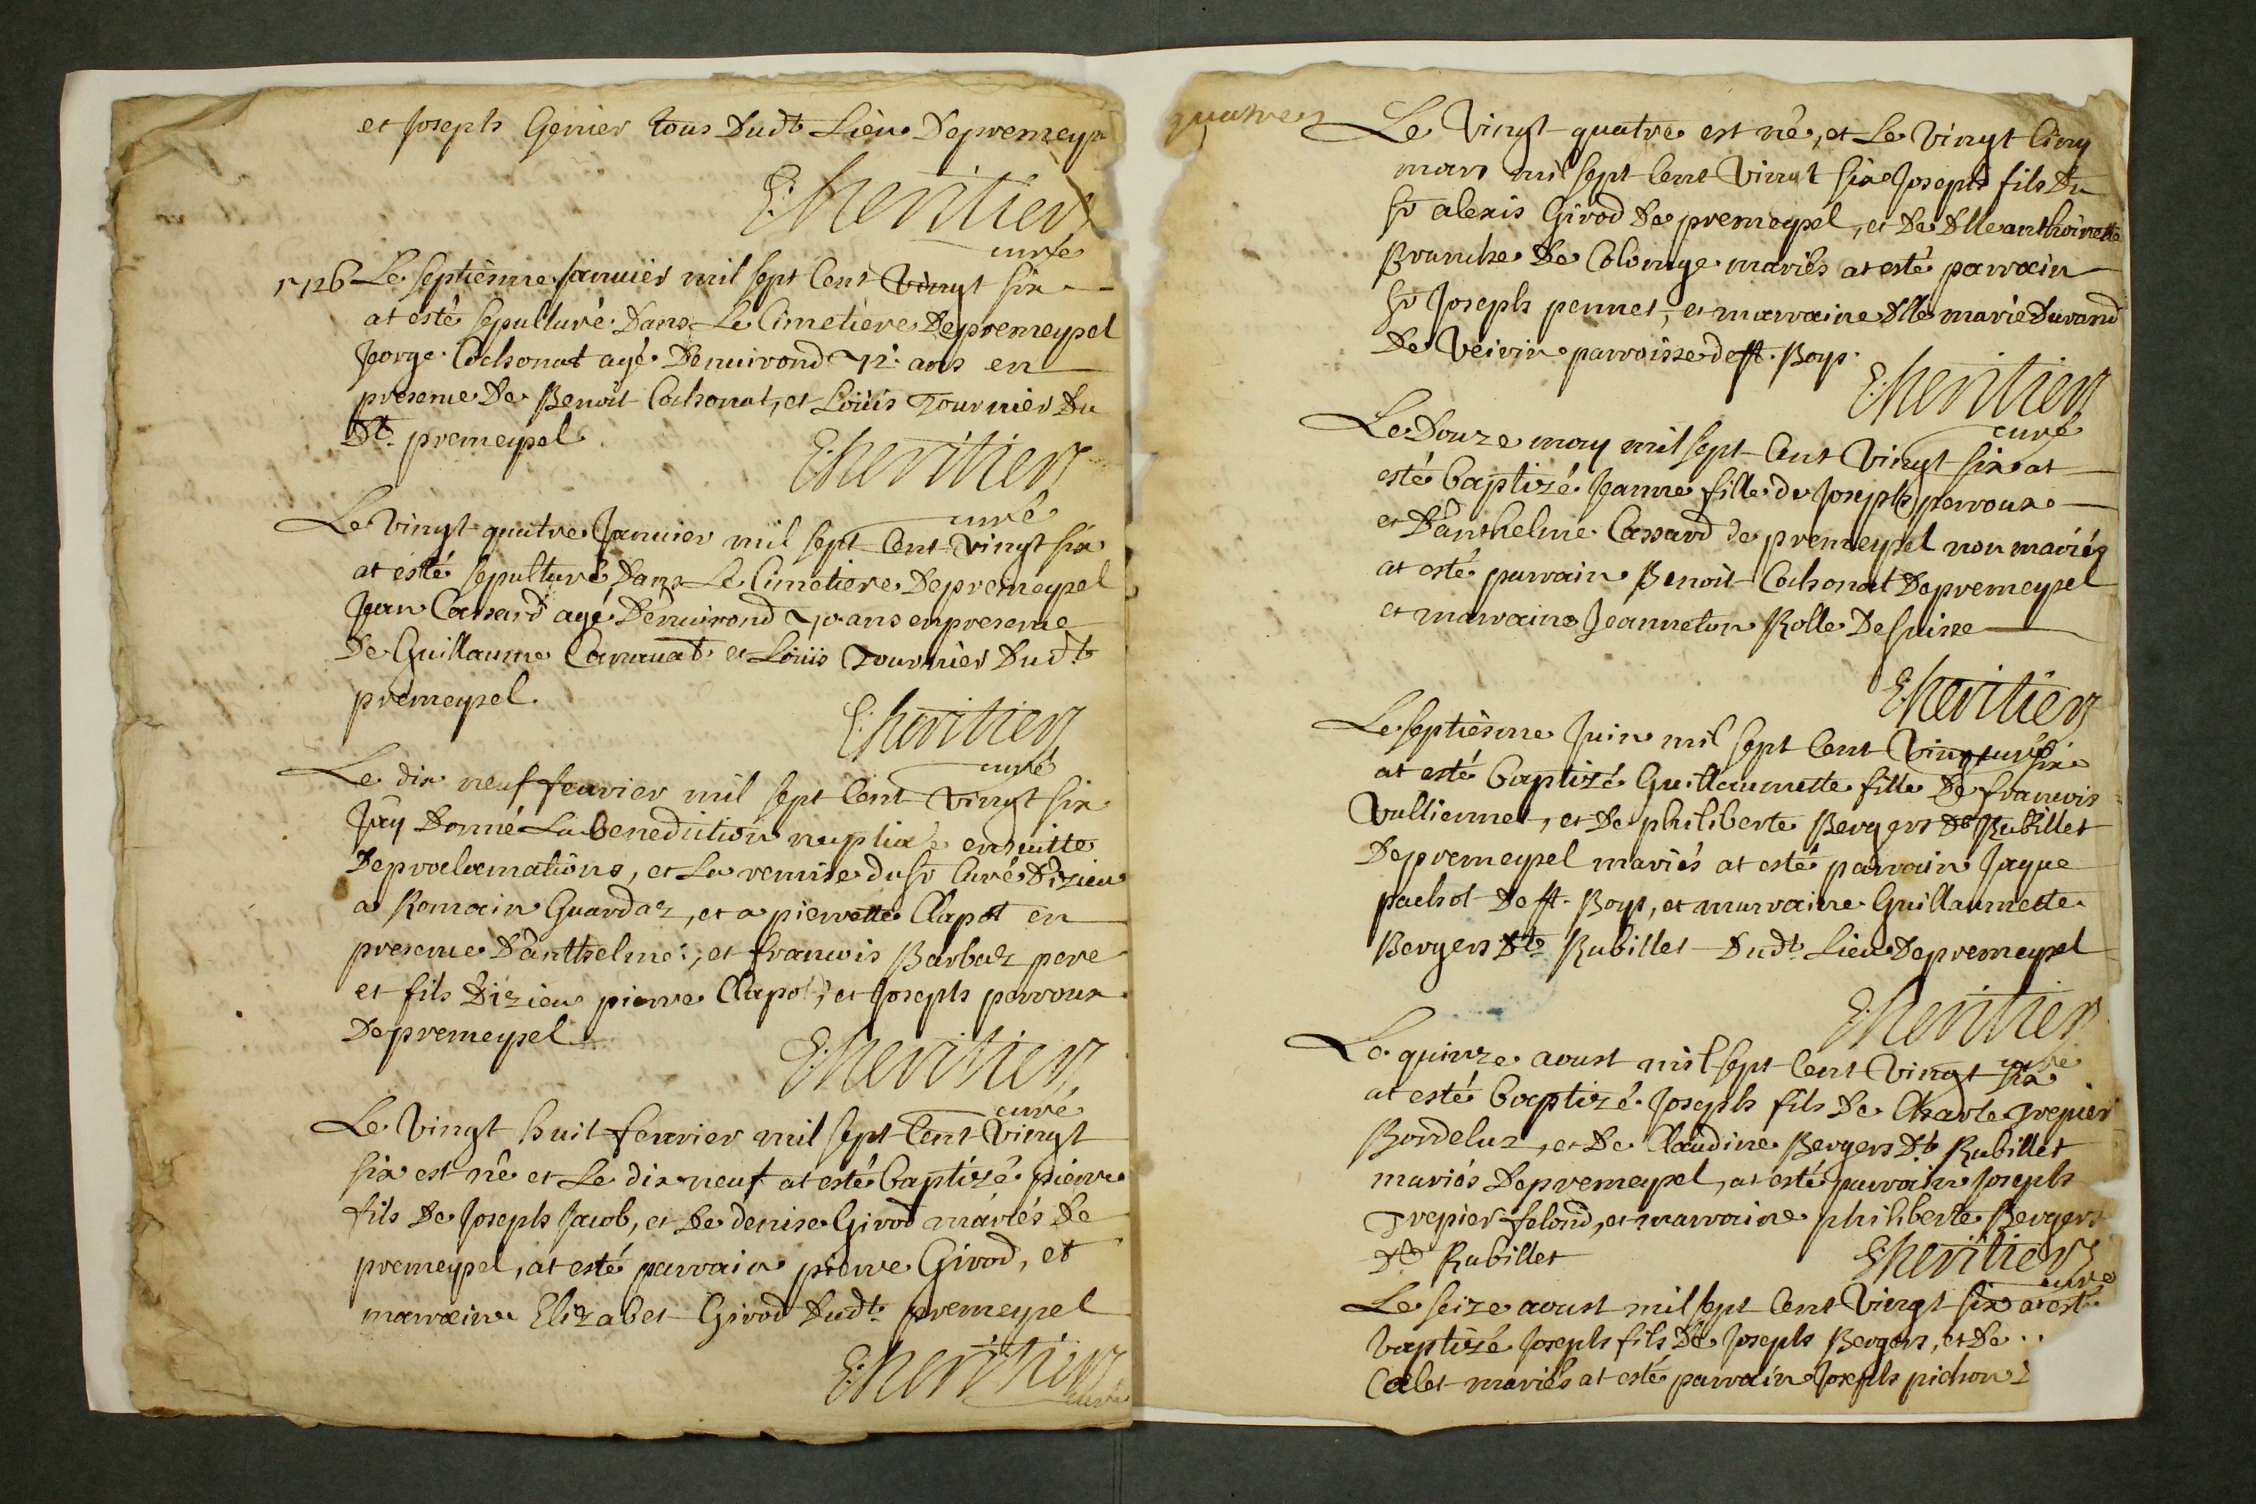 et Joseph Genier tous dudt Lieu depremeyp
E: heritier
curé
1726 Le septième Januier mil sept Cent Vingt six
at esté sepulturé dans Le Cimetière depremeypel
Jorge Cochonat agé denuirond 72 ans en
presence de Benoit Cochonat, et Loüis Tournier du
dt. premeypel
E: heritier
curé
Le Vingt quatre Januier mil sept Cent Vingt six
at esté sepulturé dans Le Cimetiere depremeypel
Jean Cassard agé denuirond 70 ans enpresence
de Guillaume et Loüis Tournier dudt
premeypel.
E: heritier
curé
Le dix neuf feurier mil sept Cent Vingt six
Jay donné La benediction nuptiale ensuitte
deproclamations, et La remise du sr Curé dizieu
a Romain Guardaz, et a pierrette Clapot en
presence d'anthelme, et francois Barbaz pere
et fils dizieu pierre Clapot, et Joseph perroux
depremeypel
E: heritier
curé
Le Vingt huit feurier mil sept Cent Vingt
six est né et Le dix neuf at esté baptizé pierre
fils de Joseph Jacob, et de denise Girod mariés de
premeypel, at esté parrain pierre Girod, et
marraine Elizabet Girod dudt premeypel
E: heritier
curé
quatre
Le Vingt quatre est né, et Le Vingt Cinq
mars mil sept Cent Vingt six Joseph fils du
sr alexis Girod de premeypel, et de dlle anthoinette
Brunche de Colonge mariés at esté parrain
sr Joseph pennet, et marraine dlle marie durand
de Veirin parroisse de st. Boys
E: heritier
curé
Le Douze may mil sept Cent Vingt six at
esté baptizé Jeanne fille de Joseph perroux
et d'anthelme Cassard de premeypel non mariés
at esté parrain Benoit Cochonat depremeypel
et marraine Jeanneton Rolle de suisse
E: heritier
curé
Le septième Juin mil sept Cent Vingt six
at esté baptizé Guillaumette fille de francois
Vulliermet, et de philiberte Bergers dt Rubillet
depremeypel mariés at esté parrain Jaque
pachot de st. Boys, et marraine Guillaumette
Bergers dt Rubillet dudt Lieu depremeypel
E: heritier
curé
Le quinze aoust mil sept Cent Vingt six
at esté baptizé Joseph fils de Charle Trepier
Bordeluz, et de Claudine Bergers dt Rubillet
mariés depremeypel, at esté parrain Joseph
Trepier felond, et marraine philiberte Bergers
dt Rubillet
E: heritier
curé
Le seize aoust mil sept Cent Vingt six at esté
baptizé Joseph fils de Joseph Bergers, et de
Calet mariés at esté parrain Joseph pichon